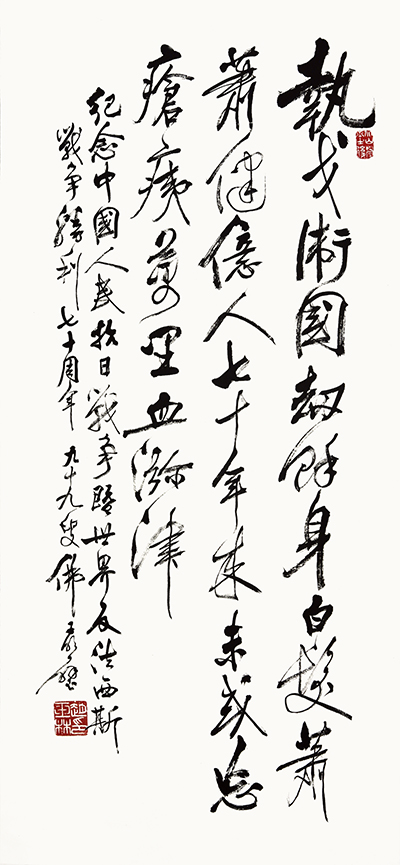 執戈衛國劫餘身白髮蕭
蕭健憶人七十年來未或忘
瘡痍萬里血瀰津
紀念中國人民抗日戰爭暨世界反法西斯
戰爭勝利七十周年 九十九叟佛